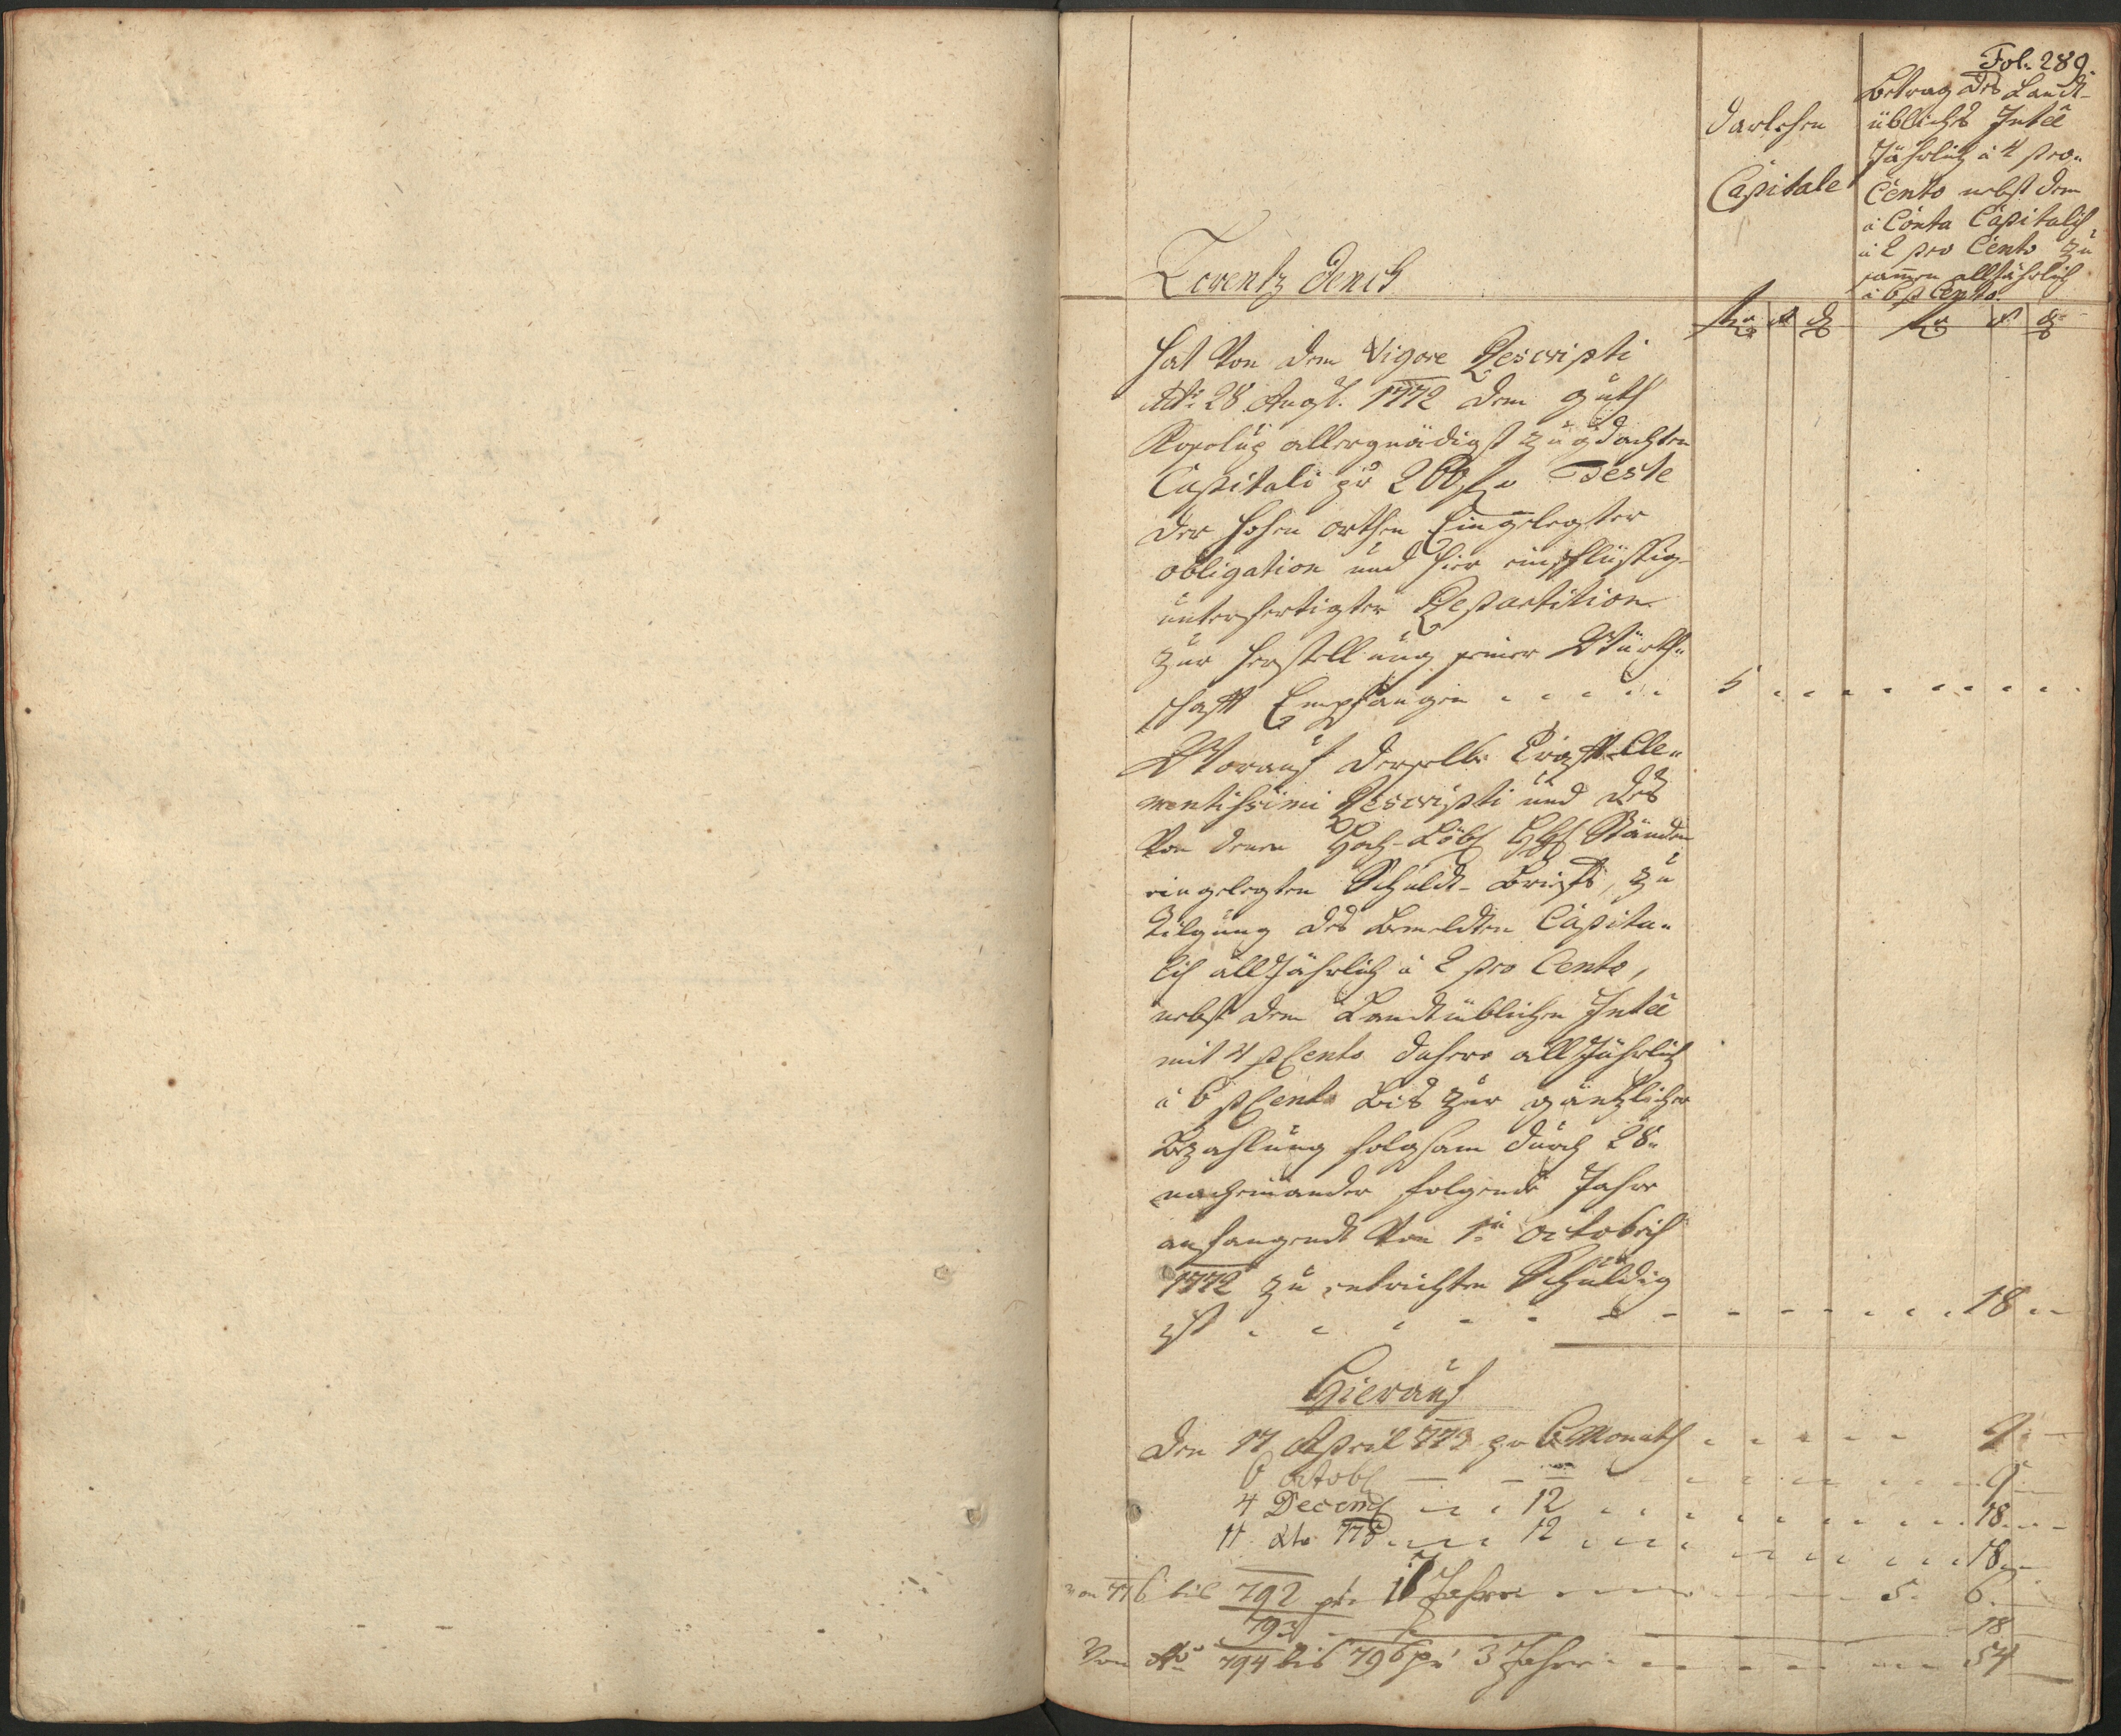 Fol. 289.
Darlehen
Capitale
Betrag des Landt-
üblichen Inteē
Jährlich à 4 pro
Cento nebst dem
à Conta Capitalis
à 2 pro Cento zu
sammen alljährlich
à 6 p Cento
Lorentz
hat von dem Vigore Rescripti
28 Augst. 1772 dem guth
allergnädigst zugedachten
Capitali pr 200 f Teste
der hohen orthen Eingelegter
obligation und hier
unterfertigter Repartition
zur herstellung seiner Würth-
schafft Empfangen 5
Worauf derselbe Krafft Cle-
mentissimi Rescripti und des
von denen Hoch-Löbl HH Ständen
eingelegten Schuldt-Briefs, zu
Tilgung des bemeldten Capita-
lis alljährlich à 2 pro Cento,
nebst dem Landtüblichen Inteē
mit 4 pCento dahero alljährlich
à 6 pCento bis zur gäntzlicher
Bezahlung folgsam durch 28
nacheinander folgende Jahre
anfangendt von 1ª Octobris
1772 zu entrichten Schuldig
ist 18
Hierauf
Den 17 April 773 pr 6 Monath 9
6 Octob 9
4 Decemb 12 18
11 dto 775 12 18
von 776 bis 792 pr 17 Jahre 5 6
793 18
Von Aō 794 bis 796 pr 3 Jahre 54